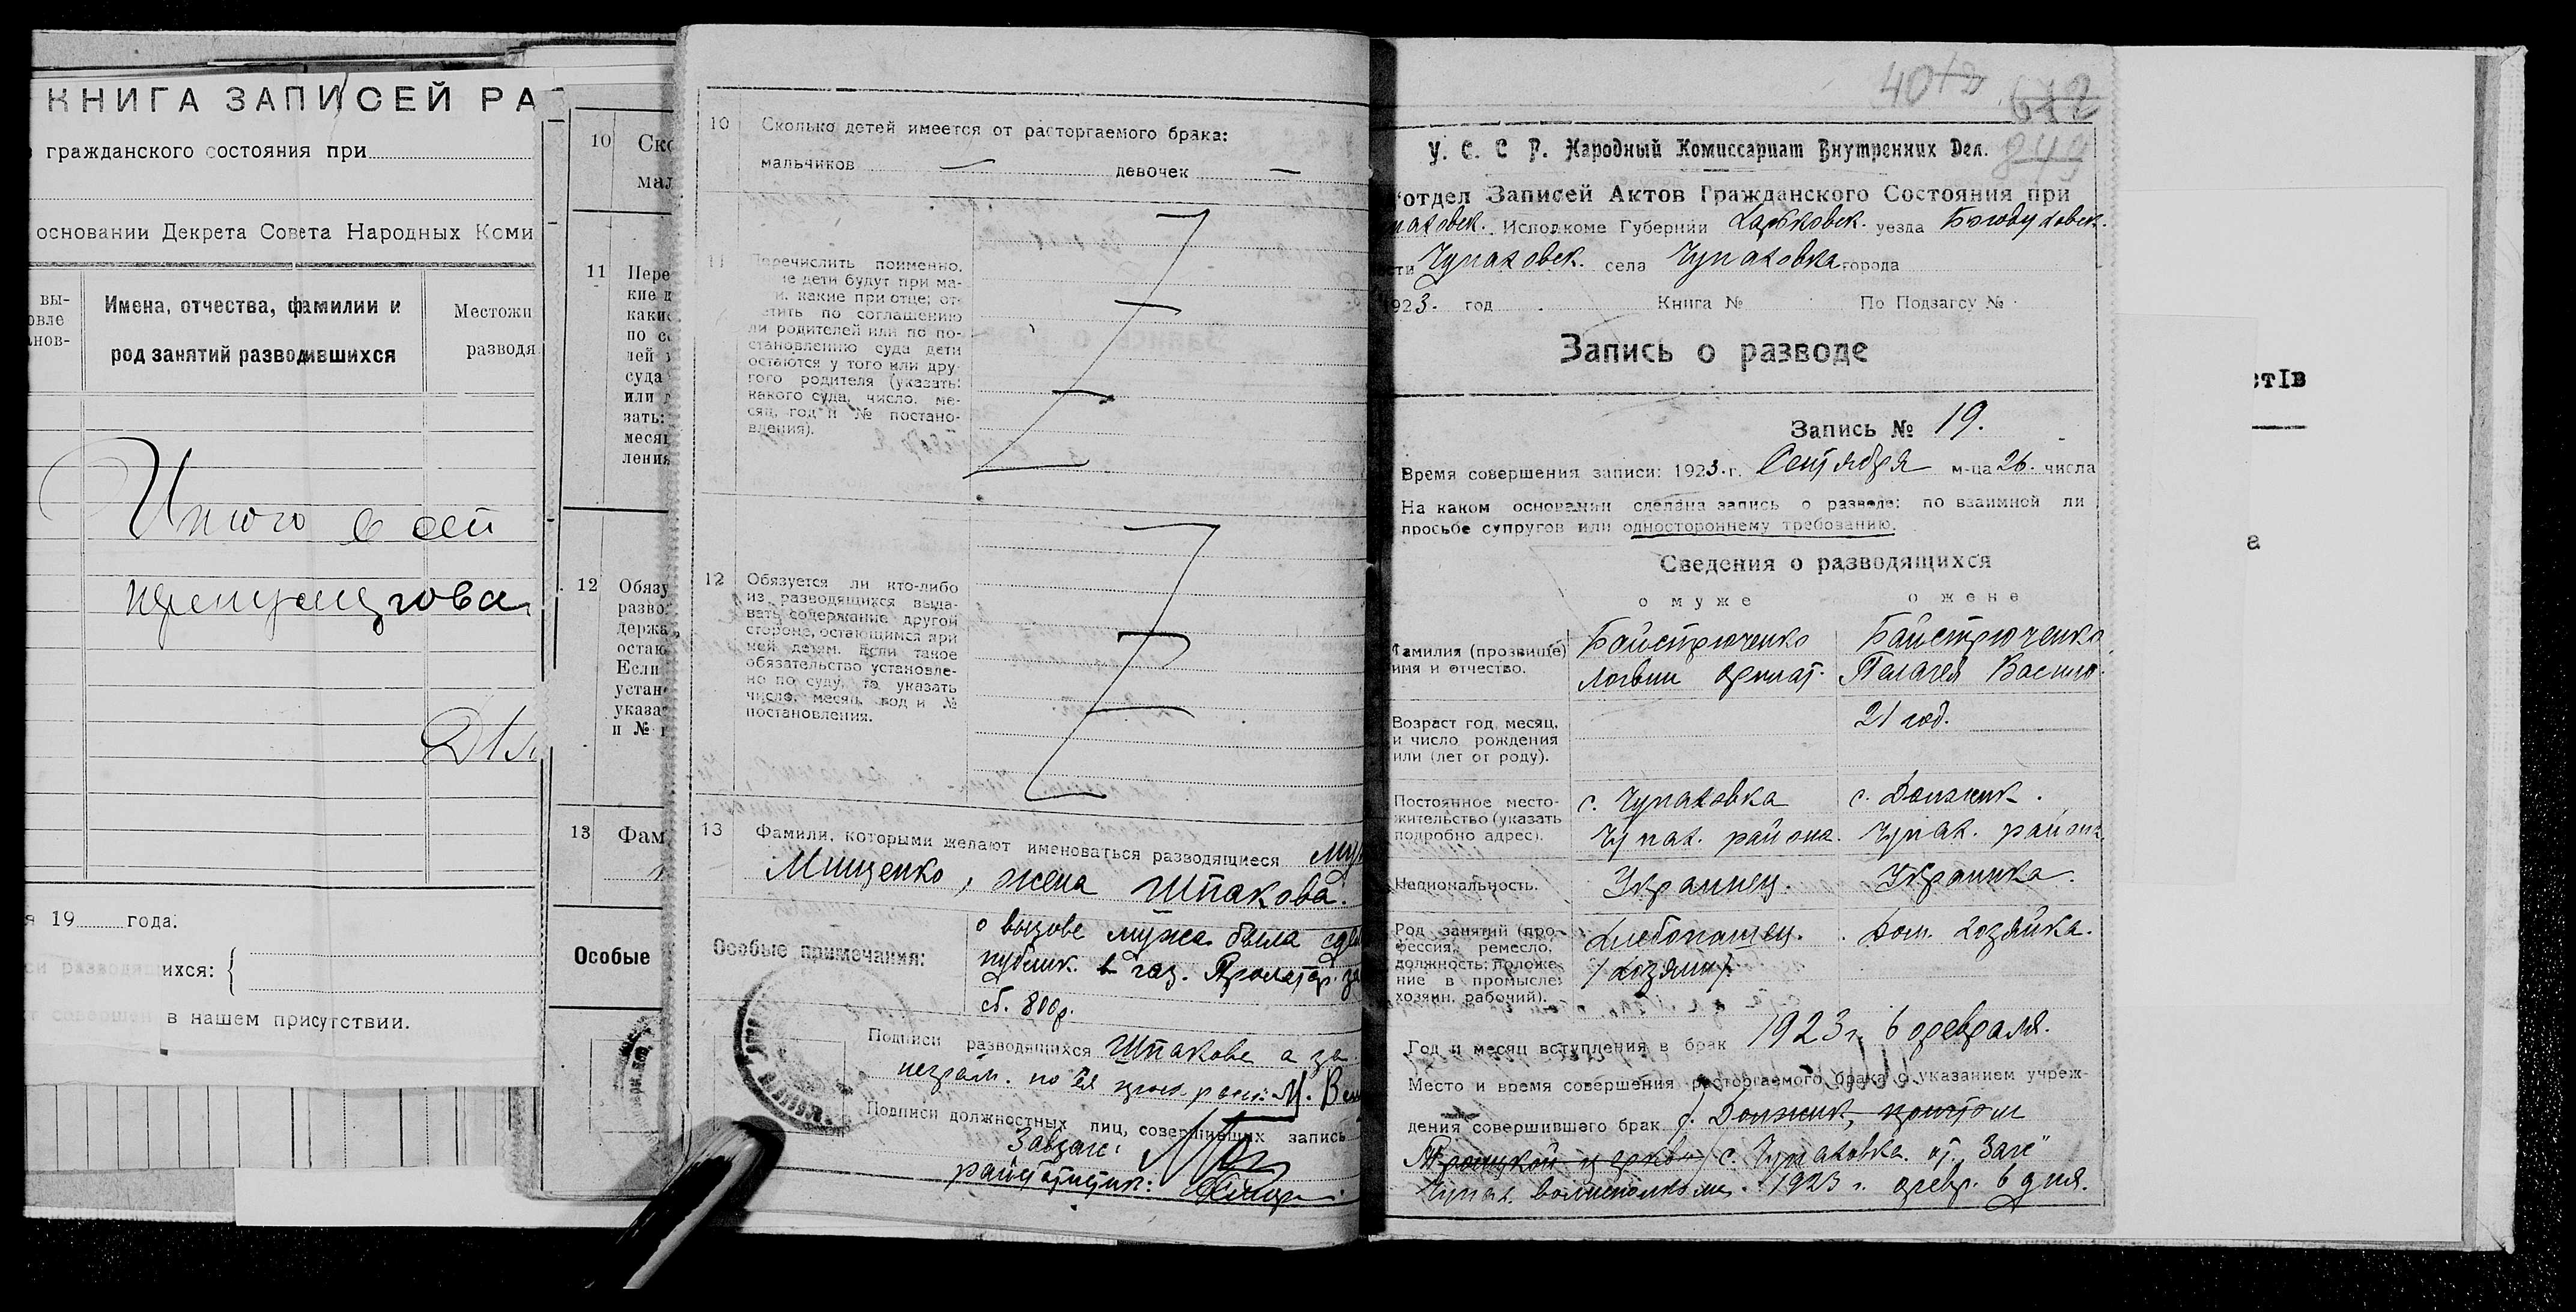 КНИГА ЗАПИСЕЙ РА
гражданского состояния при
основании Декрета Совета Народных Коми
вы-
овле
нов-
Имена, отчества, фамилии и
род занятий разводившихся
Местожи
разводя
Итого в сей
Я 19 года.
ихся:
в нашем присутствии.
10 Ско
мал
11 Пере
кие д
какие
по со
лей
суда
или
зать:
месяц
ления
12 Обязу
разво
держа
остаю
Если
устан
указа
и №
13 Фам
Особые
10 Сколько детей имеется от расторгаемого брака:
мальчиков — девочек —
11 Перечислить поименно,
ие дети будут при ма-
и, какие при отце; от-
етить по соглашению
ли родителей или по по-
становлению суда дети
остаются у того или дру-
гого родителя (указать:
какого суда, число, ме-
сяц, год и № постано-
вления).
12 Обязуется ли кто-либо
из разводящихся выда-
вать содержание другой
стороне, остающимся при
ней детям. Если такое
обязательство установле-
но по суду, то указать
число, месяц, год и №
постановления.
13 Фамилии, которыми желают именоваться разводящиеся муж
Мищенко, жена Шпакова.
Особые примечания:
о вызове мужа была сдел
публик. в газ. Пролетар. за
об. 800р.
Подписи разводящихся Шпакова а за
неграм. по ея
Подписи должностных лиц, совершивших запись
Завзагс:
райстатистик:
40
612
849
У. С. С Р. Народный Комиссариат Внутренних Дел.
отдел Записей Актов Гражданского Состояния при
паховск. Исполкоме Губернии Харьковск. уезда Богодуховск.
сти Чупаховск. села Чупаховка города
1923. год Книга № По Подзагсу №
Запись о разводе
Запись № 19.
Время совершения записи: 1923. г. Сентября м-ца 26. числа
На каком основании сделана запись о разводе: по взаимной ли
просьбе супругов или одностороннему требованию.
Сведения о разводящихся
о муже о жене
Фамилия (прозвище)
имя и отчество.
Байстрюченко
Логвин Филат.
Байстрюченко
Пелагея Васил.
Возраст год, месяц,
и число рождения
или (лет от роду).
21 год.
Постоянное место-
жительство (указать
подробно адрес).
с. Чупаховка
Чупах. района.
с. Должик.
Чупах. района
Национальность.
Украинец.
Украинка.
Род занятий (про-
фессия, ремесло,
должность; положе-
ние в промысле:
хозяин, рабочий).
Хлебопашец.
/хозяин/.
Дом. хозяйка.
Год и месяц вступления в брак 1923 г. 6 февраля.
Место и время совершения расторгаемого брака с указанием учреж-
дения совершившего брак с. Должик, притом
Троицкой церкови/ с. Чупаховка от. "Загс"
Чупах. волисполкома. 1923 г. февр. 6 дня.
стІв
а